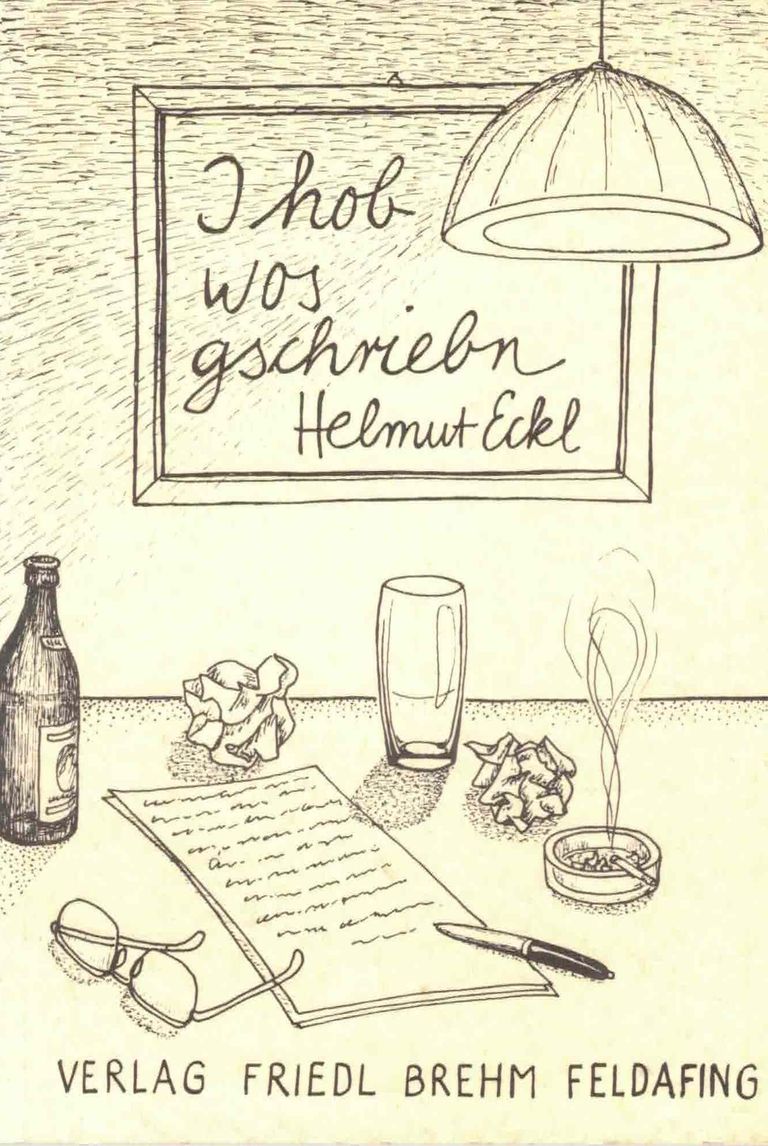 I hob
wos
gschriebn
Helmut Eckl
VERLAG FRIEDL BREHM FELDAFING